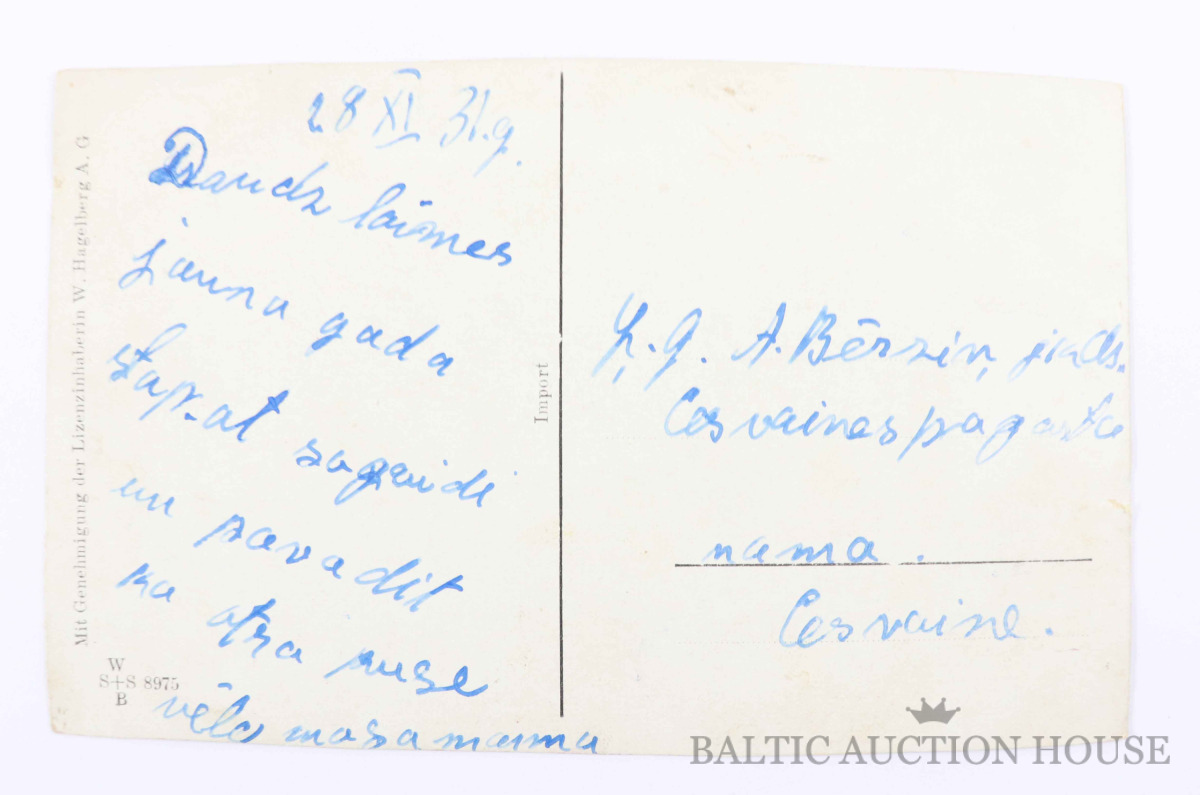 28 XI 31.g.
Daudz laimes
jauna gada
tapat sagaidi
un pavadit
ka otra puse
vēla masa mamma
Mit Genehmigung der Lizenzinhaberin W. Hagelberg A. G
W
S+S 8975
B
Import
A. Bērziņ,
Cesvaines pagasta
nama.
Cesvaine.
BALTIC AUCTION HOUSE